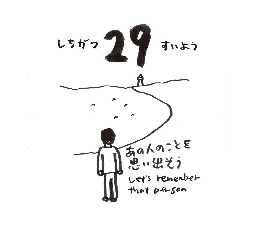 しちがつ 29 すいよう
あの人のことを
思い出そう
Let's remember
that person